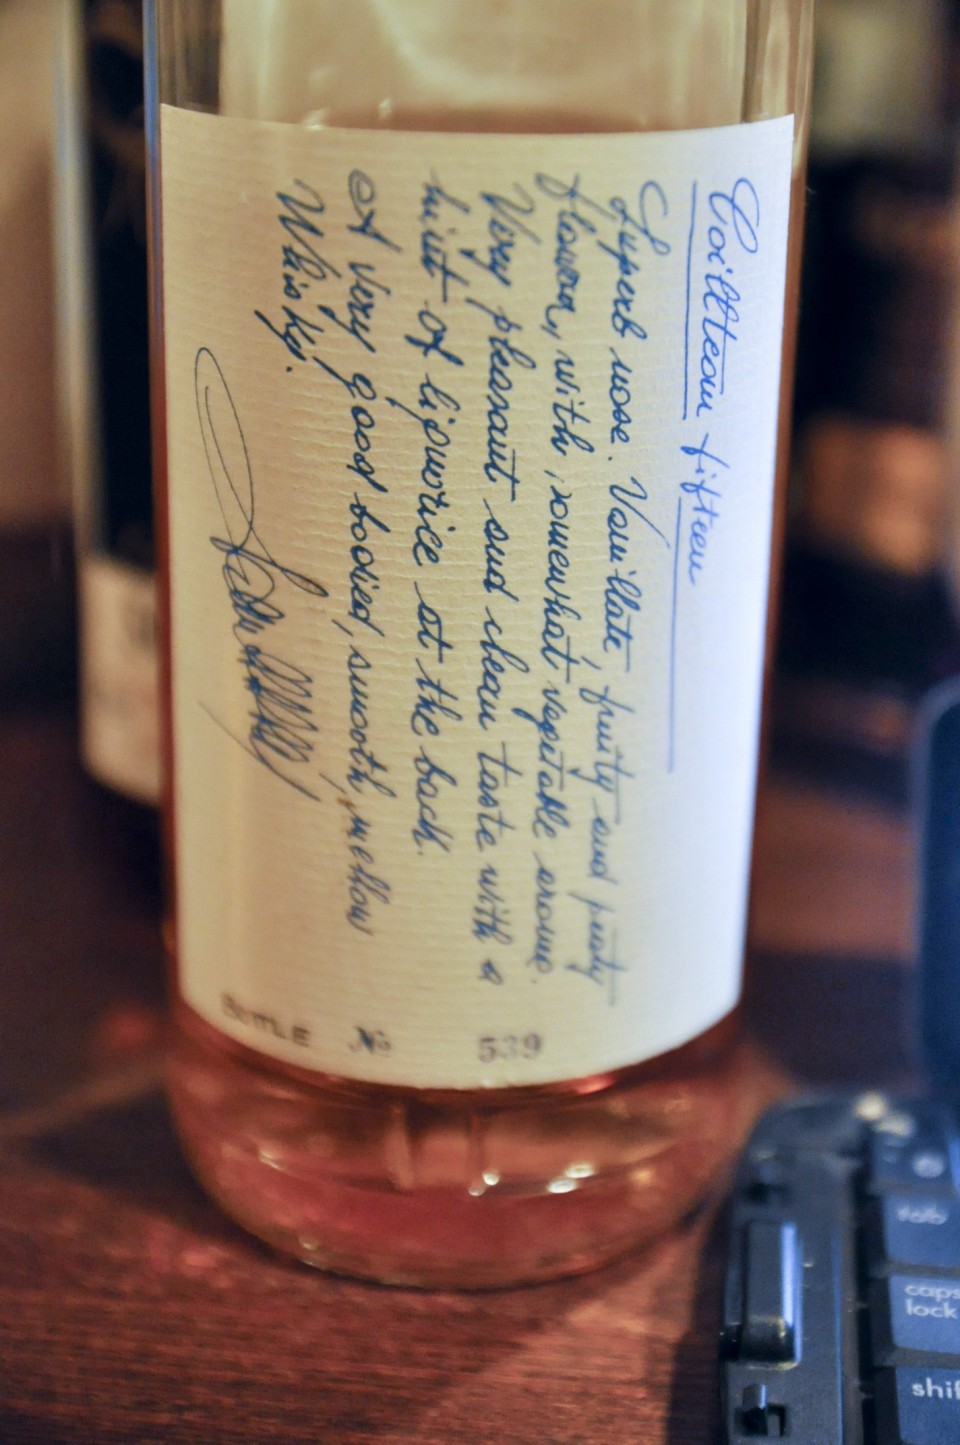 Coillteam fifteen
Superb nose. Vanillate, fruity and peaty
flavour, with somewhat vegetable aroma.
Very pleasant and clean taste with a
hint of liquorice at the back.
A very good bodied, smooth, mellow
Whisky.
BOTTLE No 539
tab
caps
lock
shif